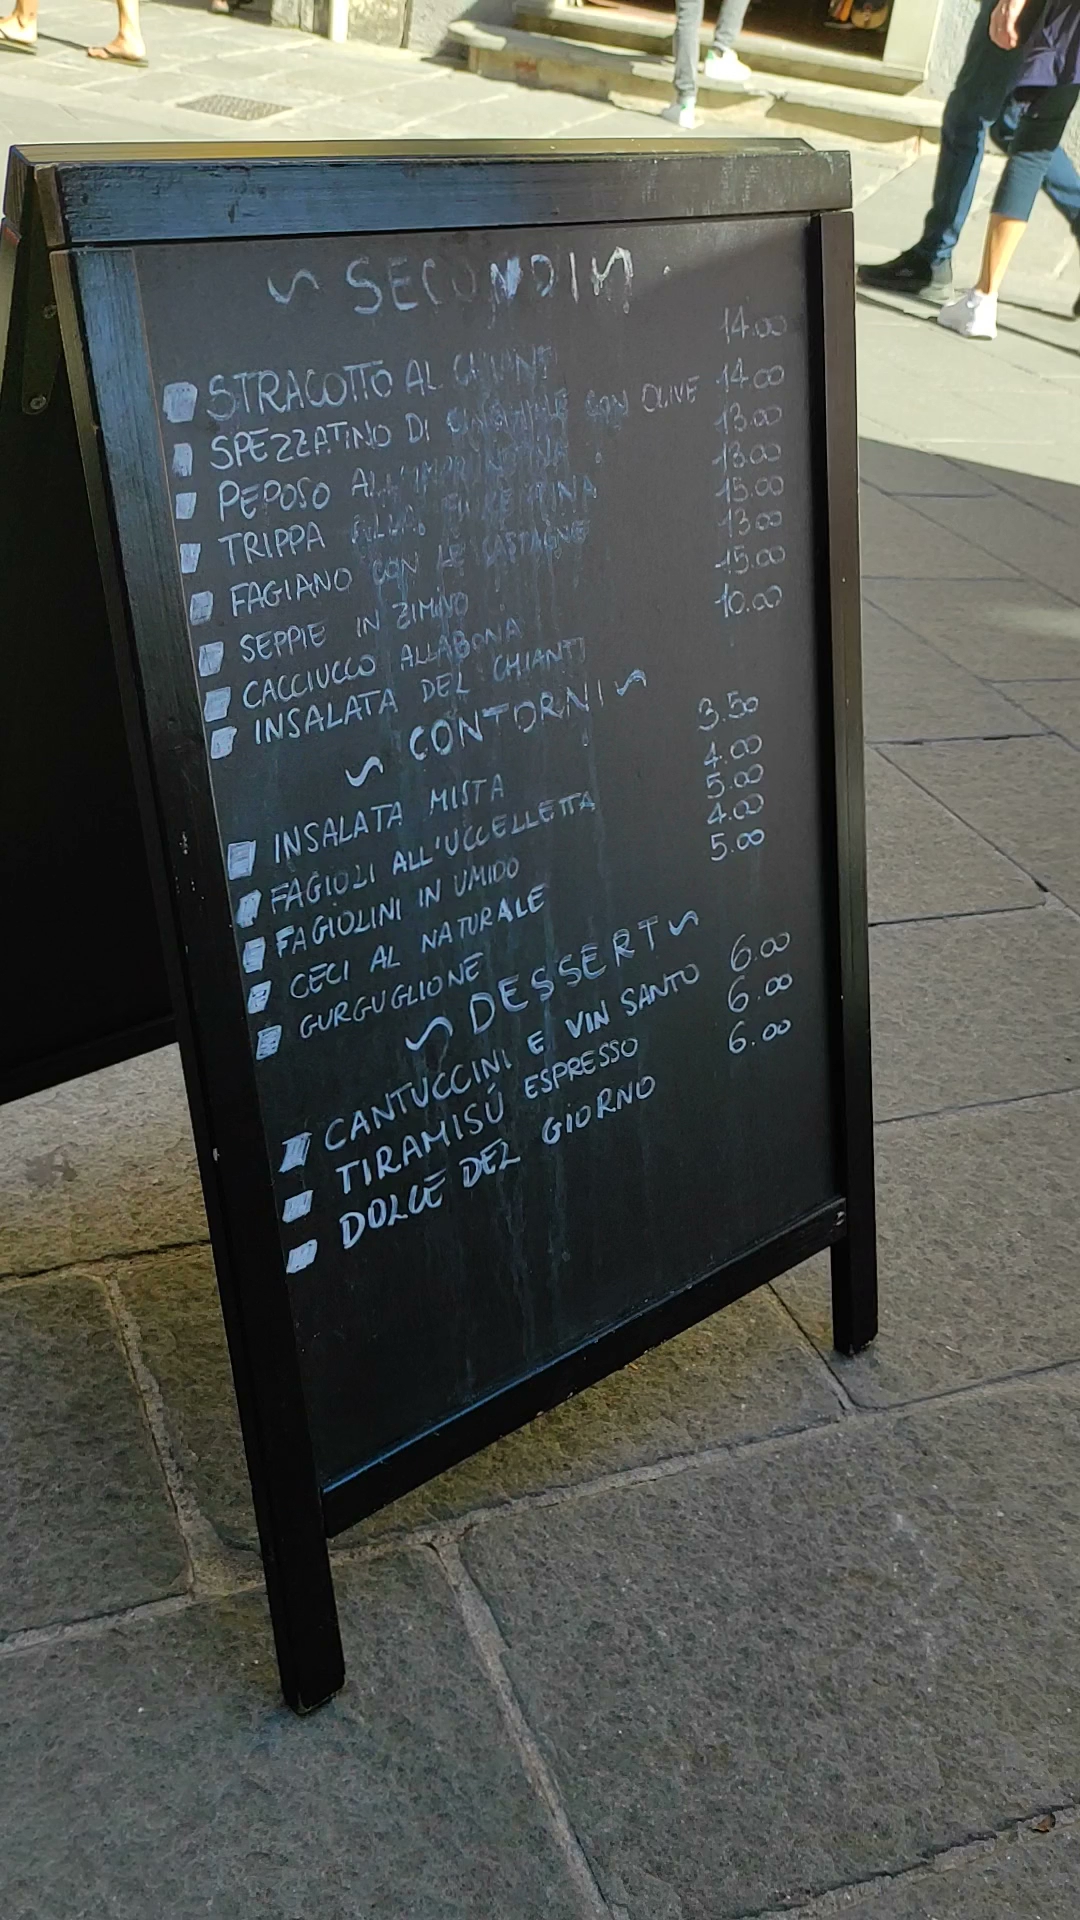 ~ SECONDI ~
STRACOTTO AL CHIANTI 14.00
SPEZZATINO DI CINGHIALE CON OLIVE 14.00
PEPOSO ALL'IMPRUNETINA 13.00
TRIPPA ALLA FIORENTINA 13.00
FAGIANO CON LE CASTAGNE 15.00
SEPPIE IN ZIMINO 13.00
CACCIUCCO ALL 15.00
INSALATA DEL CHIANTI 10.00
~ CONTORNI ~
INSALATA MISTA 3.50
FAGIOLI ALL'UCCELLETTA 4.00
FAGIOLINI IN UMIDO 5.00
CECI AL NATURALE 4.00
GURGUGLIONE 5.00
~ DESSERT ~
CANTUCCINI E VIN SANTO 6.00
TIRAMISÚ ESPRESSO 6.00
DOLCE DEL GIORNO 6.00